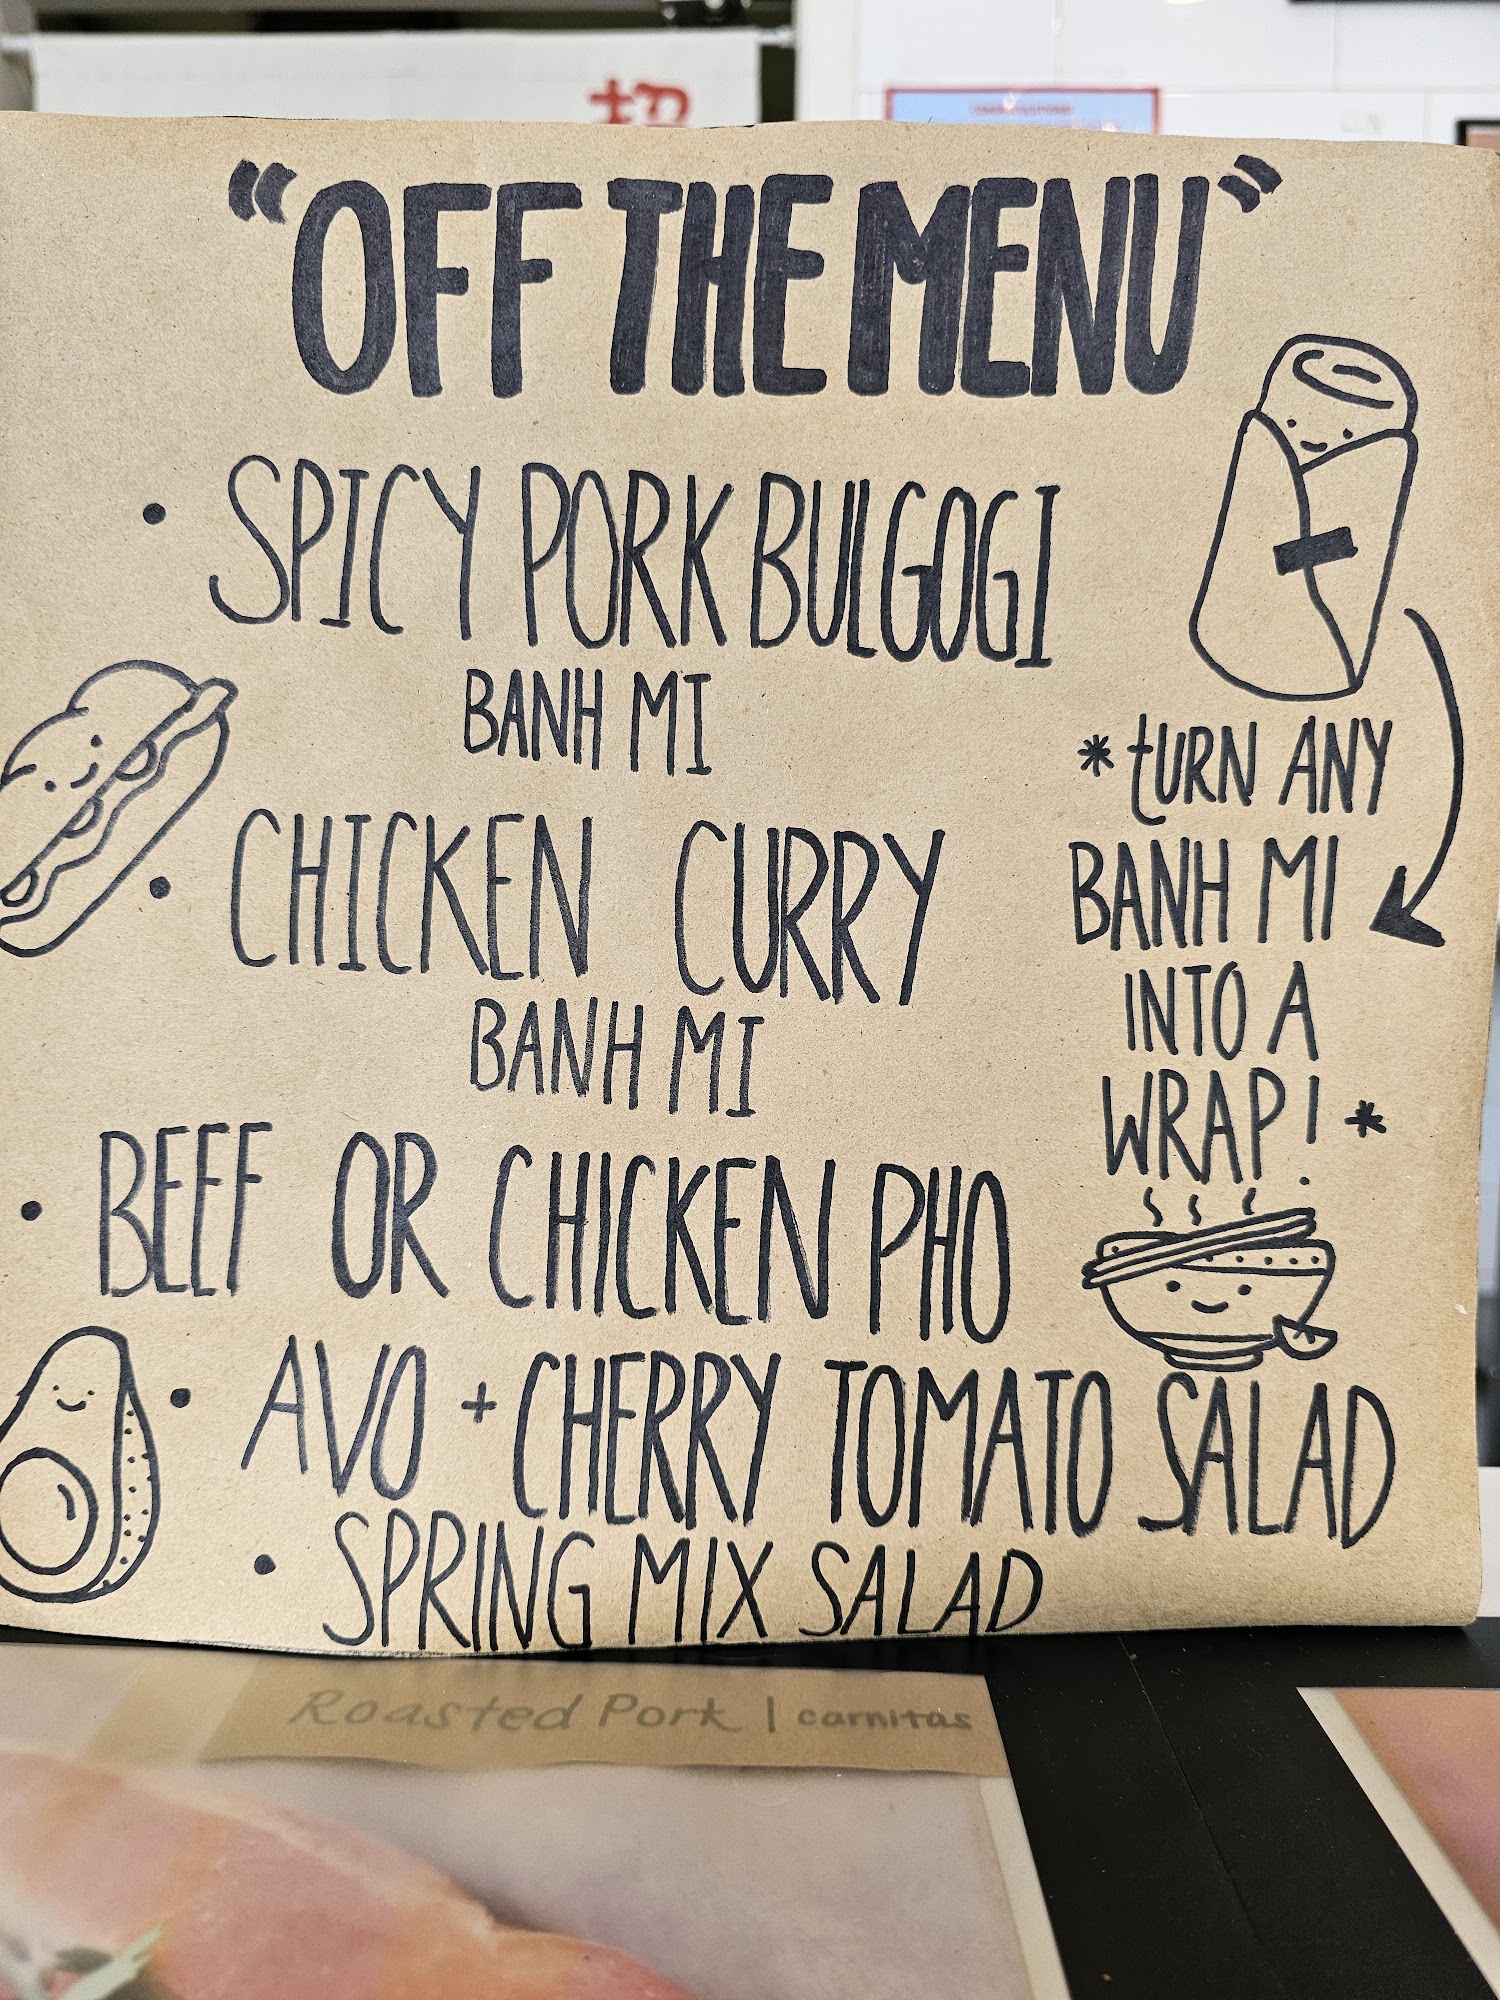 "OFF THE MENU"
• SPICY PORK BULGOGI
BANH MI
• CHICKEN CURRY
BANH MI
*TURN ANY
BANH MI
INTO A
WRAP!*
• BEEF OR CHICKEN PHO
• AVO + CHERRY TOMATO SALAD
• SPRING MIX SALAD
Roasted Pork | carnitas